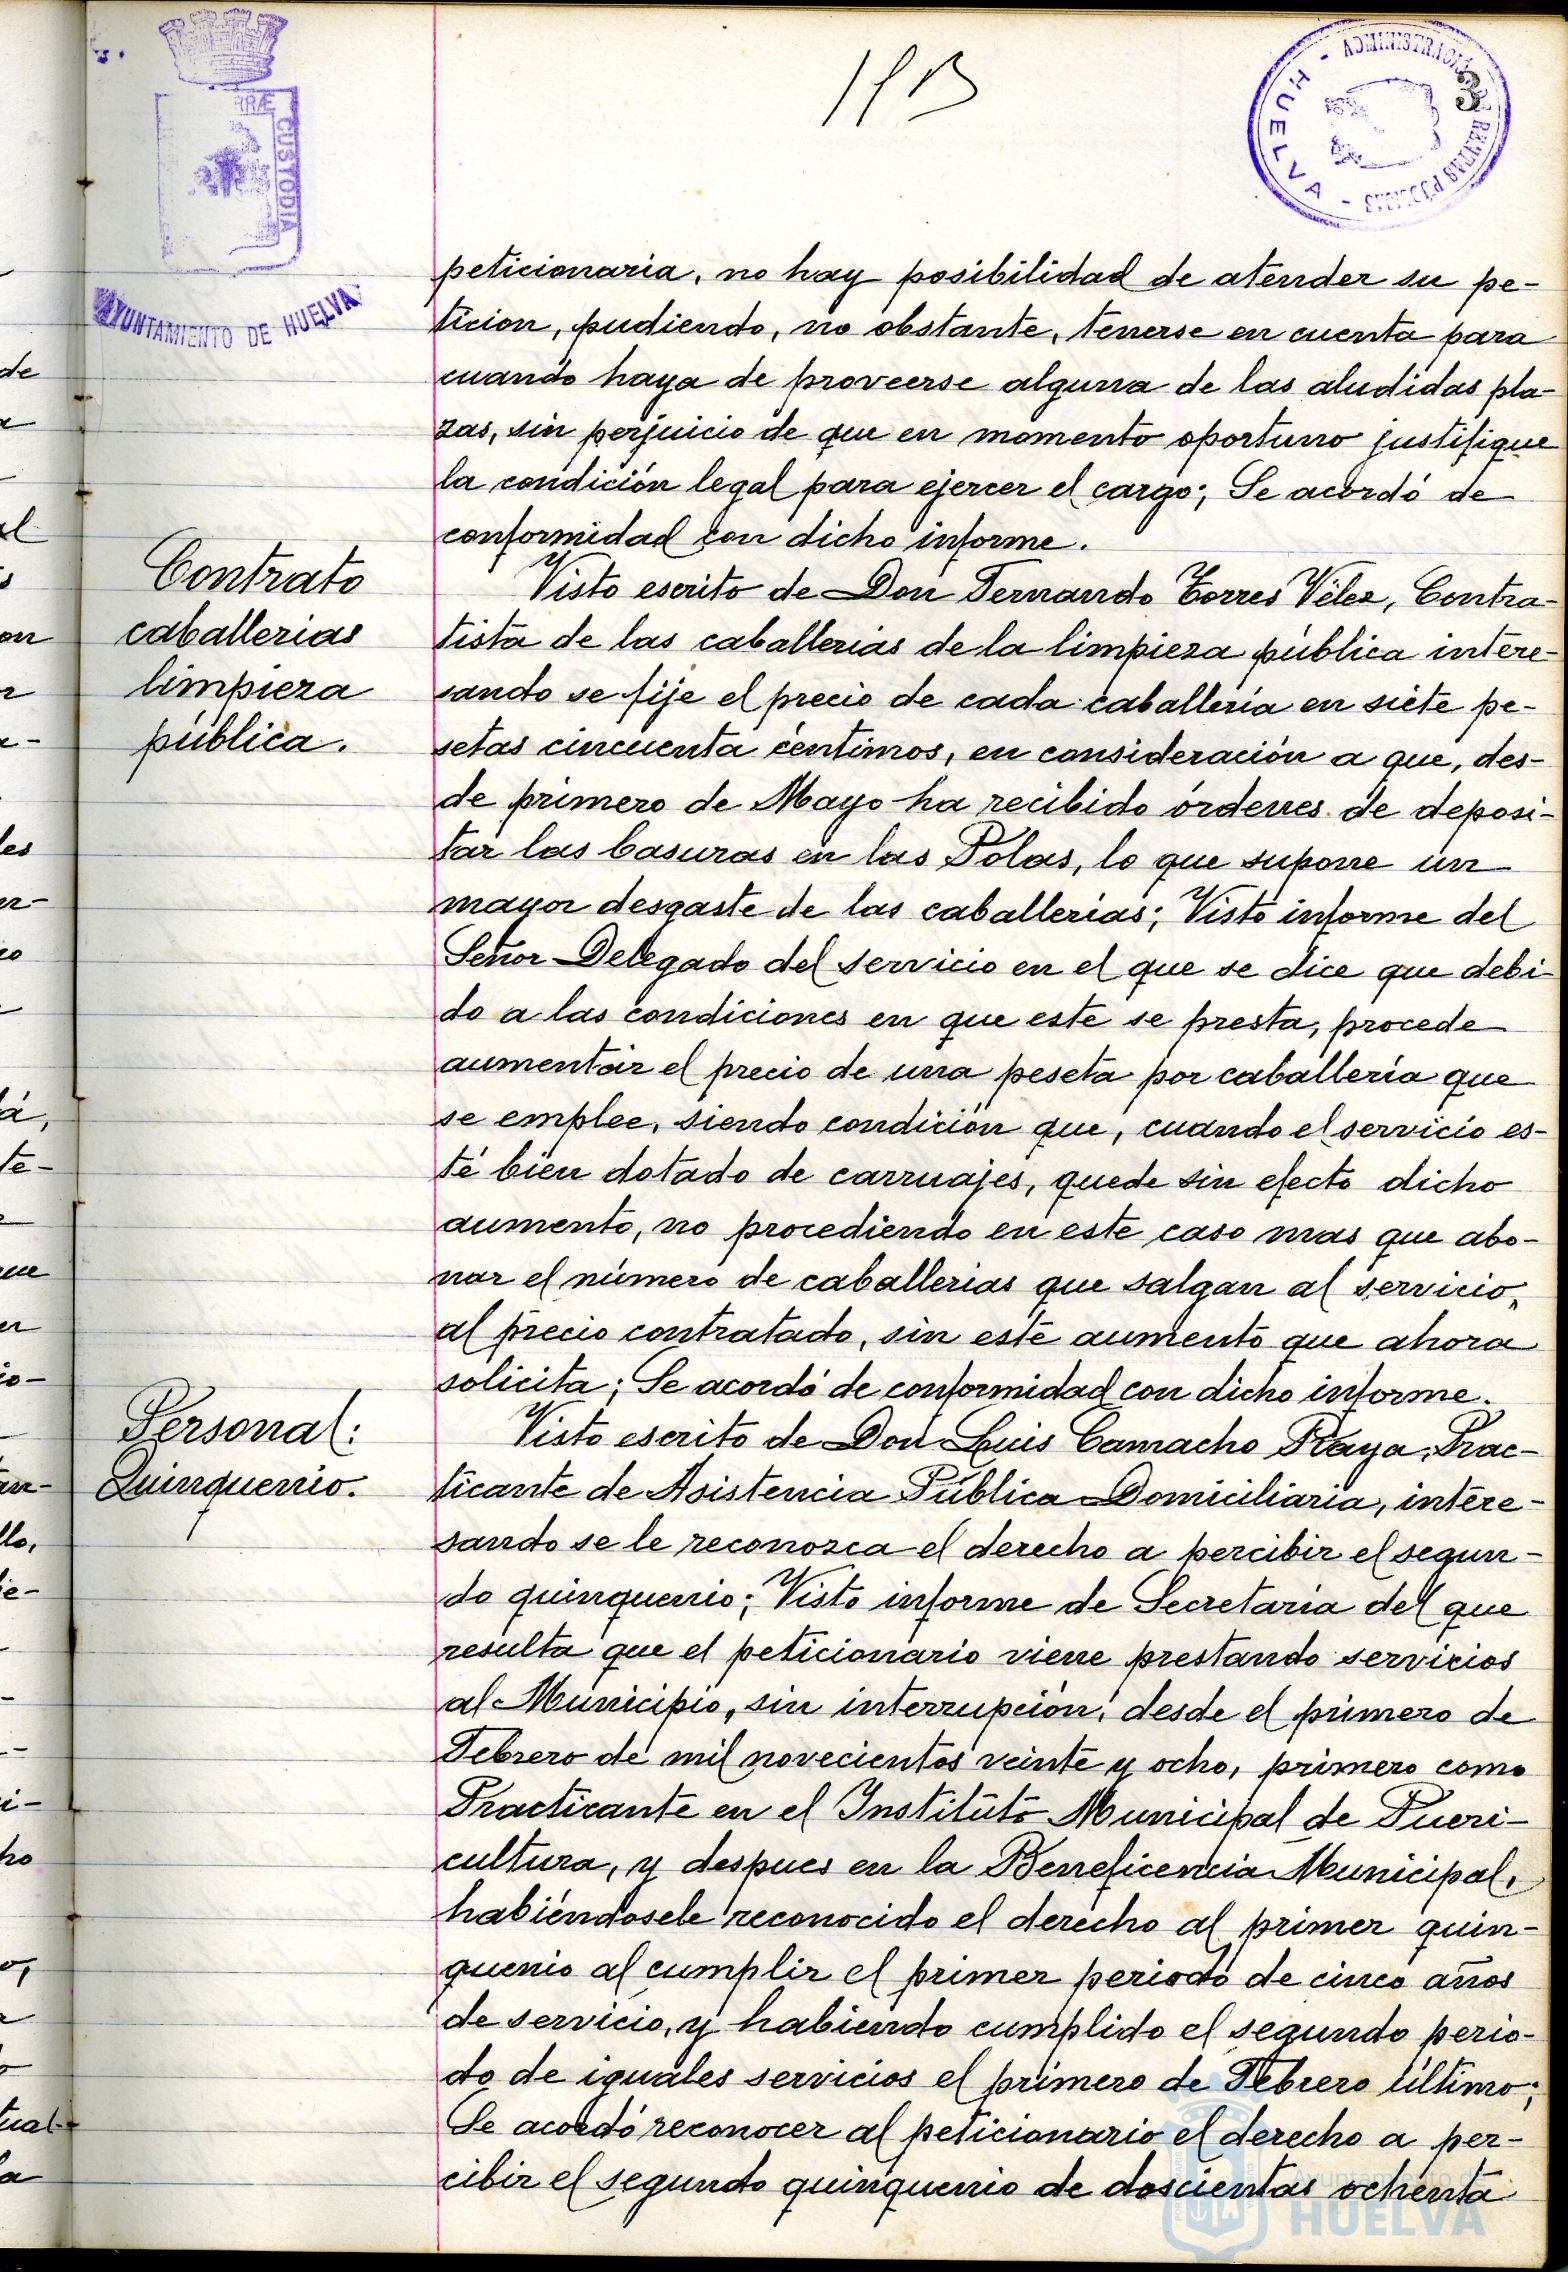 3
ADMINISTRACIÓN DE RENTAS PÚBLICAS
- HUELVA -
CUSTODIA
AYUNTAMIENTO DE HUELVA
peticionaria, no hay posibilidad de atender su pe-
ticion, pudiendo, no obstante, tenerse en cuenta para
cuando haya de proveerse alguna de las aludidas pla-
zas, sin perjuicio de que en momento oportuno justifique
la condición legal para ejercer el cargo; Se acordó de
conformidad con dicho informe.
Contrato
caballerias
limpieza
pública.
Visto escrito de Don Fernando Torres Vélez, Contra-
tista de las caballerías de la limpieza pública intere-
sando se fije el precio de cada caballería en siete pe-
setas cincuenta céntimos, en consideración a que, des-
de primero de Mayo ha recibido órdenes de deposi-
tar las basuras en las Polas, lo que supone un
mayor desgaste de las caballerías; Visto informe del
Señor Delegado del servicio en el que se dice que debi-
do a las condiciones en que este se presta, procede
aumentar el precio de una peseta por caballería que
se emplee, siendo condición que, cuando el servicio es-
té bien dotado de carruajes, quede sin efecto dicho
aumento, no procediendo en este caso mas que abo-
nar el número de caballerias que salgan al servicio,
al precio contratado, sin este aumento que ahora
solicita; Se acordó de conformidad con dicho informe.
Personal:
Quinquenio.
Visto escrito de Don Luis Camacho Raya, Prac-
ticante de Asistencia Pública Domiciliaria, intere-
sando se le reconozca el derecho a percibir el segun-
do quinquenio; Visto informe de Secretaría del que
resulta que el peticionario viene prestando servicios
al Municipio, sin interrupción, desde el primero de
Febrero de mil novecientos veinte y ocho, primero como
Practicante en el Instituto Municipal de Pueri-
cultura, y despues en la Beneficencia Municipal,
habiéndosele reconocido el derecho al primer quin-
quenio al cumplir el primer periodo de cinco años
de servicio, y habiendo cumplido el segundo perio-
do de iguales servicios el primero de Febrero último;
Se acordó reconocer al peticionario el derecho a per-
cibir el segundo quinquenio de doscientas ochenta
Ayuntamiento de
HUELVA